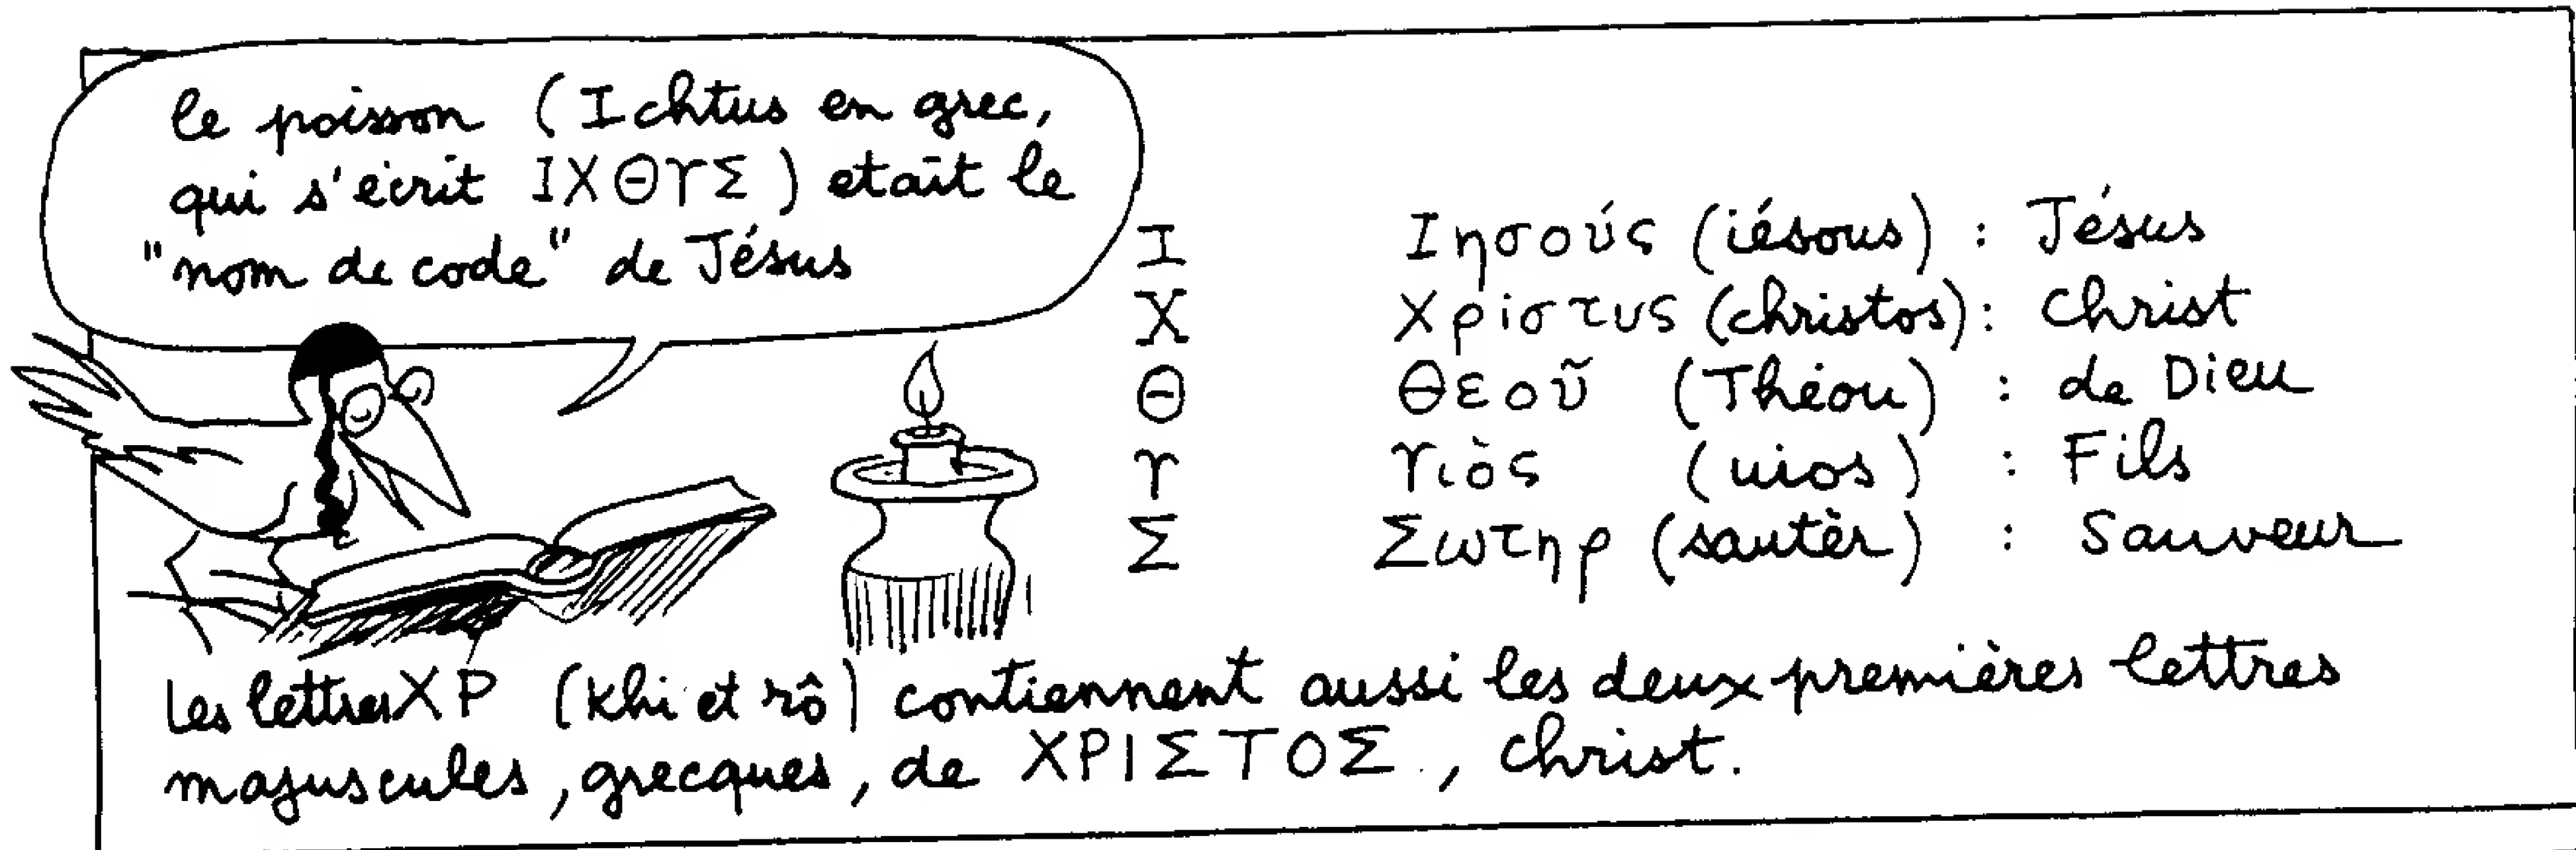 le poisson (Ichtus en grec,
qui s'écrit ΙΧΘΥΣ) etaît le
"nom de code" de Jésus
Ι Ιησούς (iésous) : Jésus
Χ Χριστυς (christos) : Christ
Θ Θεοῦ (Théou) : de Dieu
Υ Υιὸς (uios) : Fils
Σ Σωτηρ (sautèr) : Sauveur
Les lettres ΧΡ (khi et rô) contiennent aussi les deux premières lettres
majuscules, grecques, de ΧΡΙΣΤΟΣ., Christ.